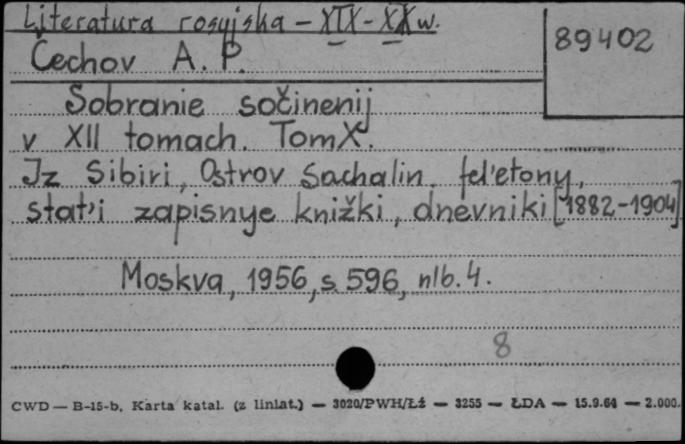 Literatura rosyjska - XIX - XX w.
89402
Čechov A. P.
Sobranie sočinenij
v XII tomach. Tom X.
Iz Sibiri, Ostrov Sachalin, fel'etony,
stat'i zapisnye knižki, dnevniki [1882-1904]
Moskva, 1956, s. 596, nlb. 4.
8
CWD — B-15-b. Karta katal. (z liniat.) — 3020/PWH/Łź — 3255 — ŁDA — 15.9.64 — 2.000.